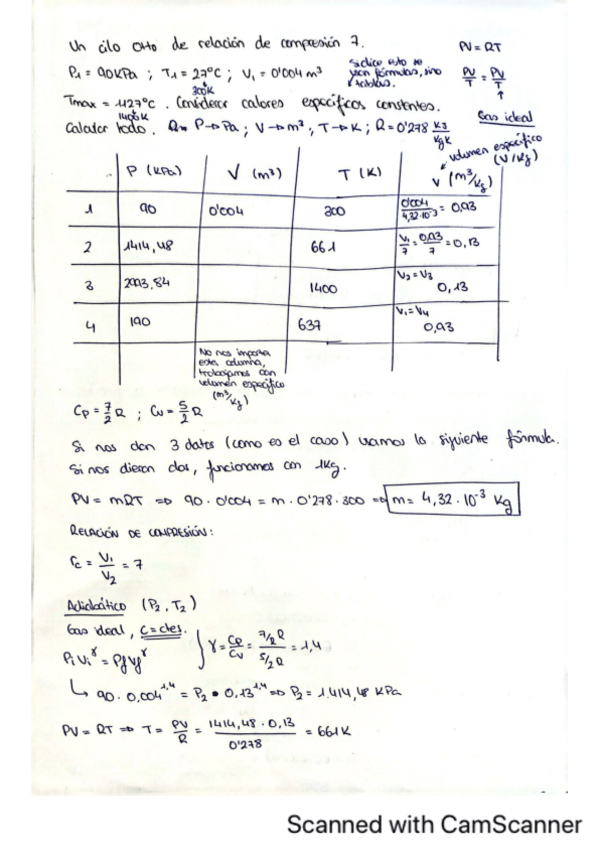 Un ciclo Otto de relación de compresión 7.
PV = RT
P₁ = 90KPa ; T₁ = 27°C ; V₁ = 0'004 m³
300K
PV/T = PV/T
Gas ideal
Tmax = 1127°C. Considerar calores específicos constantes.
1400K
Calcular todo. P→Pa ; V→m³ ; T→K ; R=0'278 KJ/KgK
volumen específico (V/Kg)
P (KPa) V (m³) T (K) v (m³/Kg)
1 90 0'004 300 0'004/4,32·10⁻³ = 0,93
2 1414,48 661 V₁/7 = 0,93/7 = 0,13
3 2993,84 1400 V₂ = V₃ 0,13
4 190 637 V₁ = V₄ 0,93
No nos importa
esta columna,
trabajamos con
volumen específico
(m³/Kg)
Cp = 7/2 R ; Cv = 5/2 R
Si nos dan 3 datos (como es el caso) usamos la siguiente fórmula.
Si nos dieran dos, funcionamos con 1Kg.
PV = mRT ⇒ 90 · 0'004 = m · 0'278 · 300 ⇒ m = 4,32 · 10⁻³ Kg
RELACIÓN DE COMPRESIÓN:
rc = V₁/V₂ = 7
Adiabático (P₂, T₂)
Gas ideal, C = ctes.
γ = Cp/Cv = 7/2R / 5/2R = 1,4
PiVi^γ = PfVf^γ
↳ 90 · 0,004^1,4 = P₂ · 0,13^1,4 ⇒ P₂ = 1.414,48 KPa
PV = RT ⇒ T = PV/R = 1414,48 · 0,13 / 0'278 = 661K
Scanned with CamScanner